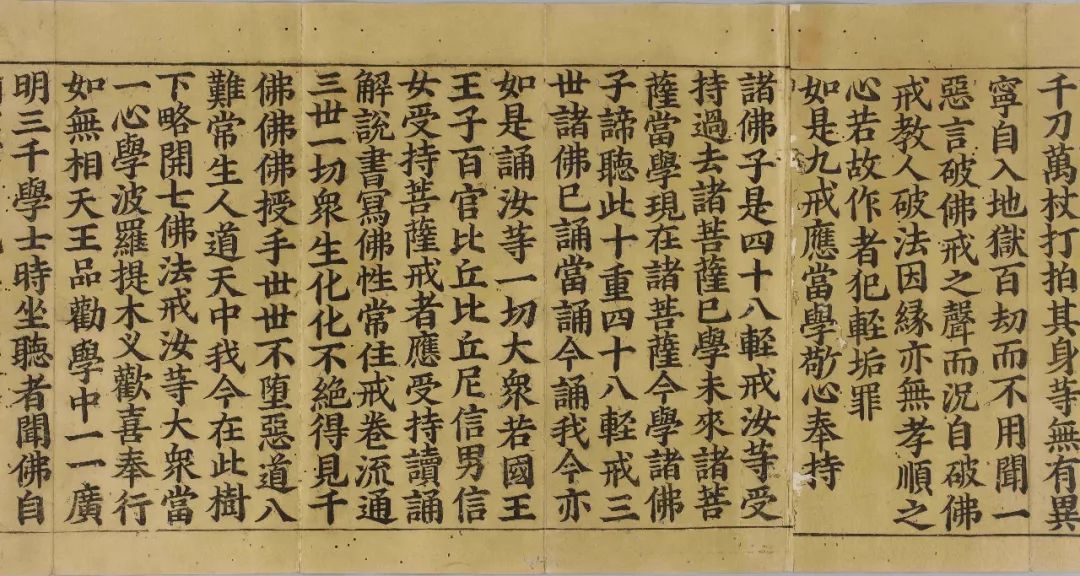 千刀萬杖打拍其身等無有異
寧自入地獄百劫而不用聞一
惡言破佛戒之聲而況自破佛
戒教人破法因緣亦無孝順之
心若故作者犯輕垢罪
如是九戒應當學敬心奉持
諸佛子是四十八輕戒汝等受
持過去諸菩薩已學未來諸菩
薩當學現在諸菩薩今學諸佛
子諦聽此十重四十八輕戒三
世諸佛已誦當誦今誦我今亦
如是誦汝等一切大衆若國王
王子百官比丘比丘尼信男信
女受持菩薩戒者應受持讀誦
解說書寫佛性常住戒卷流通
三世一切衆生化化不絕得見千
佛佛佛授手世世不墮惡道八
難常生人道天中我今在此樹
下略開七佛法戒汝等大衆當
一心學波羅提木叉歡喜奉行
如無相天王品勸學中一一廣
明三千學士時坐聽者聞佛自